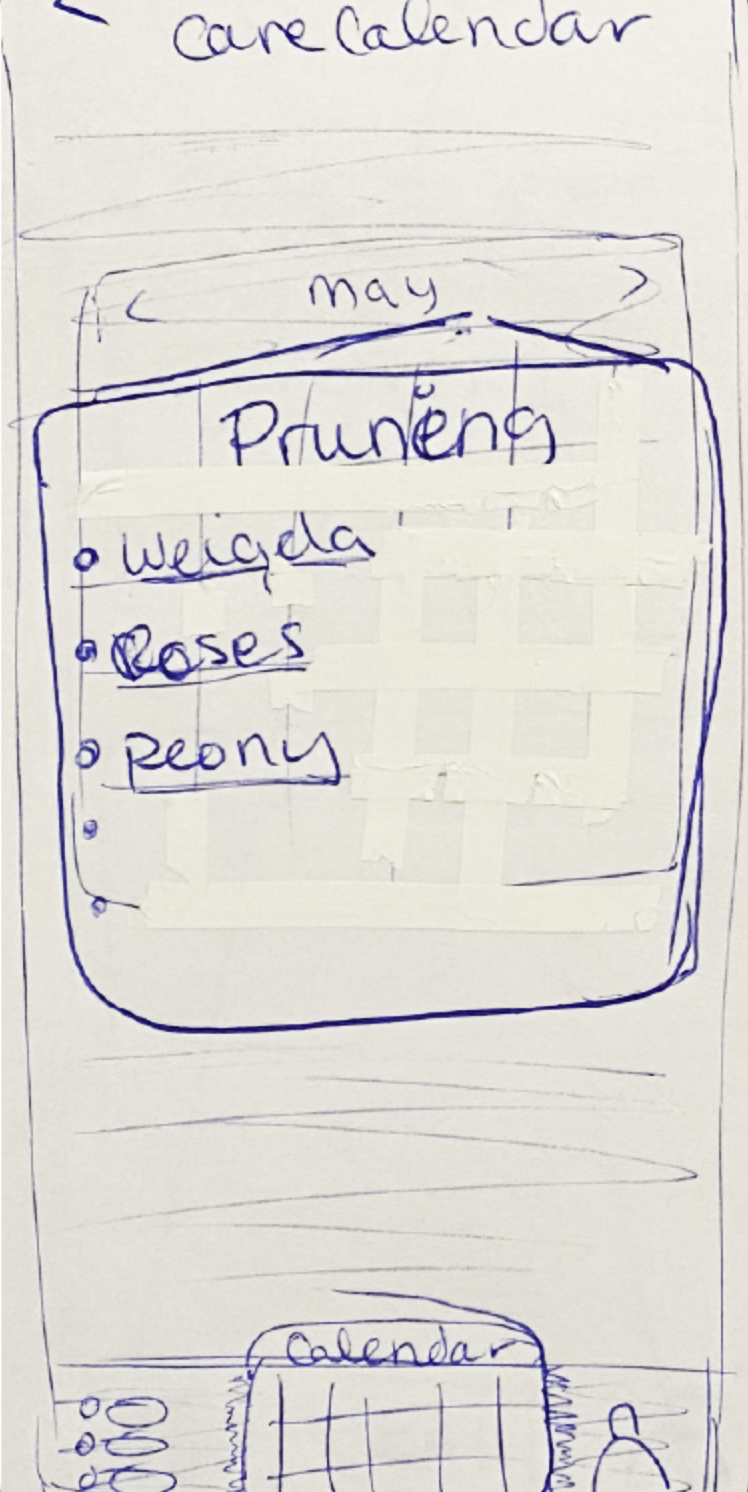 Care Calendar
< may >
Pruning
Weigela
Roses
peony
Calendar